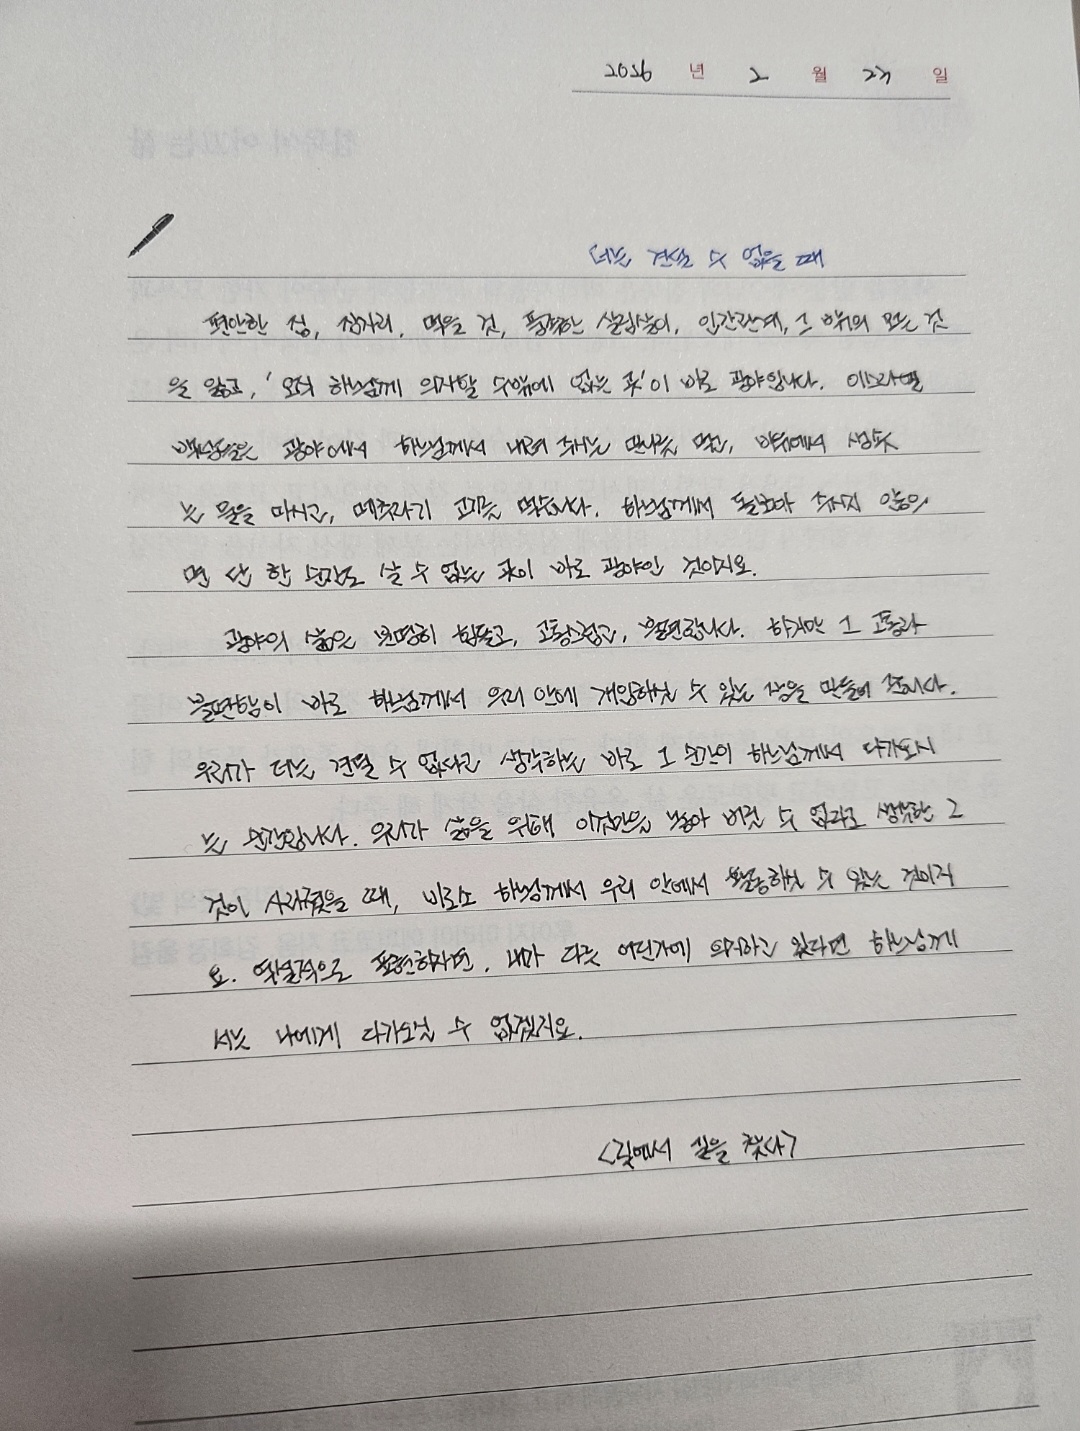 2026 년 2 월 23 일
더는 견딜 수 없을 때
편안한 집, 잠자리, 먹을 것, 풍족한 살림살이, 인간관계, 그 밖의 모든 것
을 잃고, '오직 하느님께 의지할 수밖에 없는 곳'이 바로 광야입니다. 이스라엘
백성들은 광야에서 하느님께서 내려 주시는 만나를 먹고, 바위에서 샘솟
는 물을 마시고, 메추라기 고기를 먹습니다. 하느님께서 돌보아 주시지 않으
면 단 한 순간도 살 수 없는 곳이 바로 광야인 것이지요.
광야의 삶은 분명히 힘들고, 고통스럽고, 불편합니다. 하지만 그 고통과
불편함이 바로 하느님께서 우리 안에 개입하실 수 있는 장을 만들어 줍니다.
우리가 더는 견딜 수 없다고 생각하는 바로 그 순간이 하느님께서 다가오시
는 순간입니다. 우리가 삶을 위해 이것만은 놓아 버릴 수 없다고 생각한 그
것이 사라졌을 때, 비로소 하느님께서 우리 안에서 활동하실 수 있는 것이지
요. 역설적으로 표현하자면, 내가 다른 어딘가에 의지하고 있다면 하느님께
서는 나에게 다가오실 수 없겠지요.
<길에서 길을 찾다>